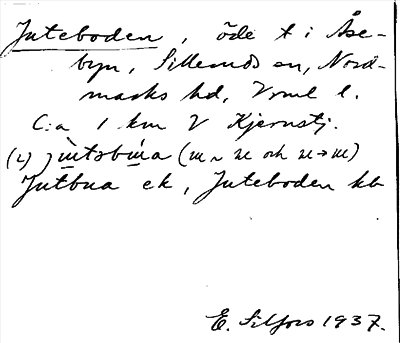 Juteboden, öde t i Åse-
byn, Silleruds sn, Nord-
marks hd, Vrml l.
C:a 1 km V Kjernstj.
(L)
Jutbua ek, Juteboden kb
E. Silfors 1937.